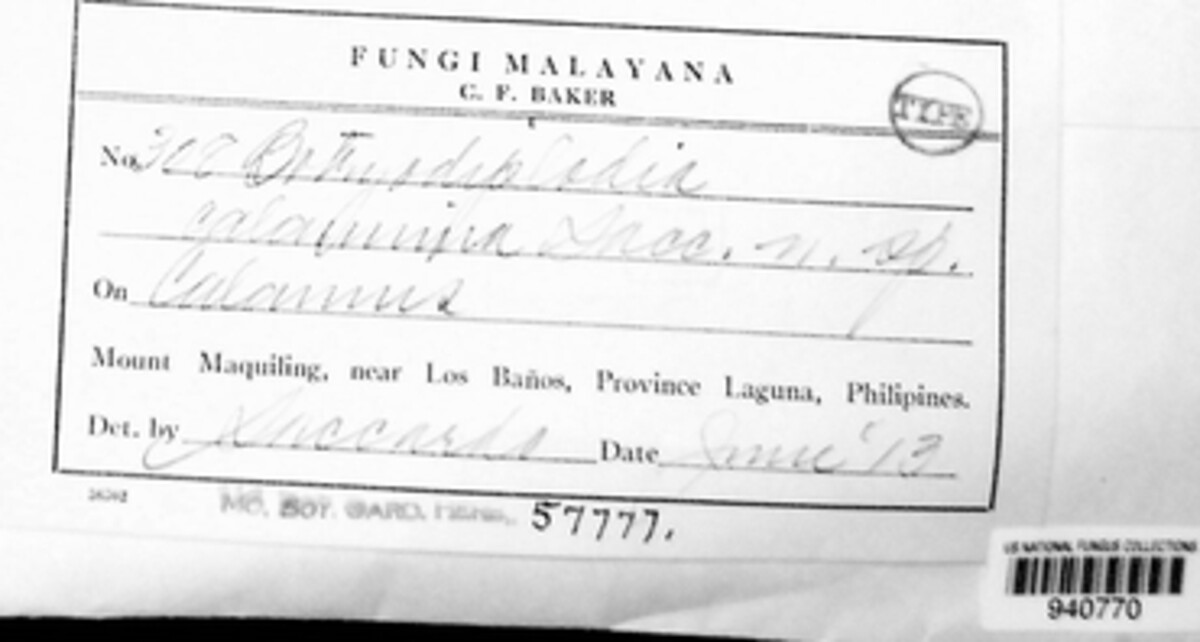 FUNGI MALAYANA
C. F. BAKER
TYPE
No. 300 Botryodiplodia
calamina Sacc. n. sp.
On Calamus
Mount Maquiling, near Los Baños, Province Laguna, Philipines.
Det. by Saccardo Date June '13
MO. BOT. GARD. HERB. 57777.
US NATIONAL FUNGUS COLLECTIONS
940770